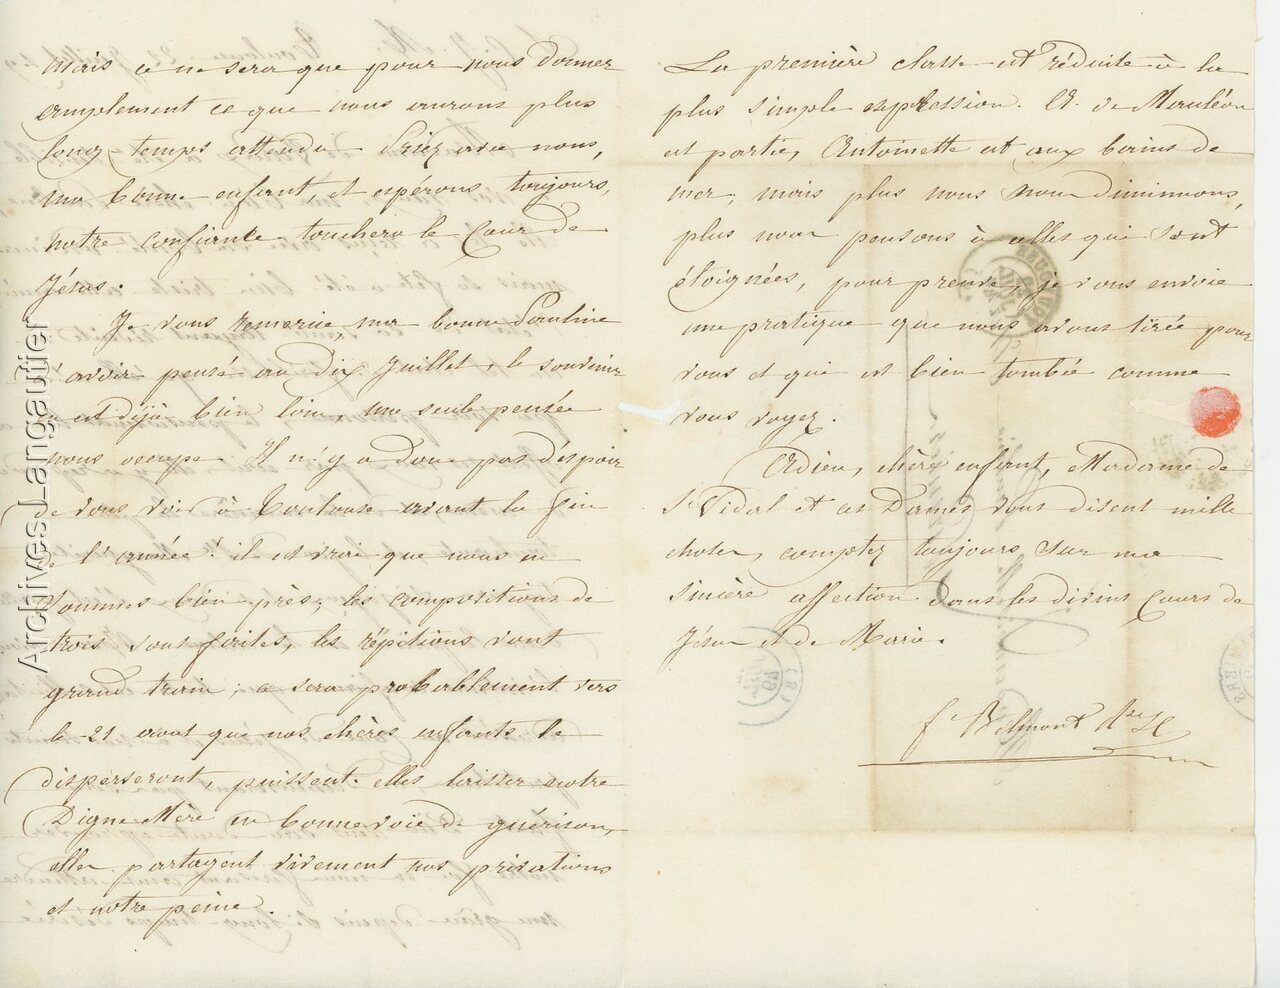 mais ce ne sera que pour nous donner
amplement ce que nous aurons plus
long-temps attendu. Priez avec nous,
ma bonne enfant et espérons toujours,
notre confiance touchera le Cœur de
Jésus.
Je vous remercie ma bonne Pauline
d'avoir pensé au dix Juillet, le souvenir
en est déjà bien loin, une seule pensée
nous occupe. Il n'y a donc pas d'espoir
de vous voir à Toulouse avant la fin
de l'année! il est vrai que nous en
sommes bien près, les compositions de
trois sont faites, les répititions vont
grand train; ce sera probablement vers
le 21 aout que nos chères enfants se
disperseront, puissent-elles laisser notre
Digne Mère en bonne voie de guérison,
elles partagent vivement nos privations
et notre peine.
La première classe est réduite à la
plus simple expression. A. de Mauléon
est partie, Antoinette est aux bains de
mer, mais plus nous nous diminuons,
plus nous pensons à celles qui sont
éloignées, pour preuve, je vous envoie
une pratique que nous avons tirée pour
vous et qui est bien tombée comme
vous voyez.
Adieu, chère enfant, Madame de
St Vidal et ces Dames vous disent mille
choses, comptez toujours sur ma
sincère affection dans les divins Cœurs de
Jésus et de Marie.
f Belmont
Archives Langautier